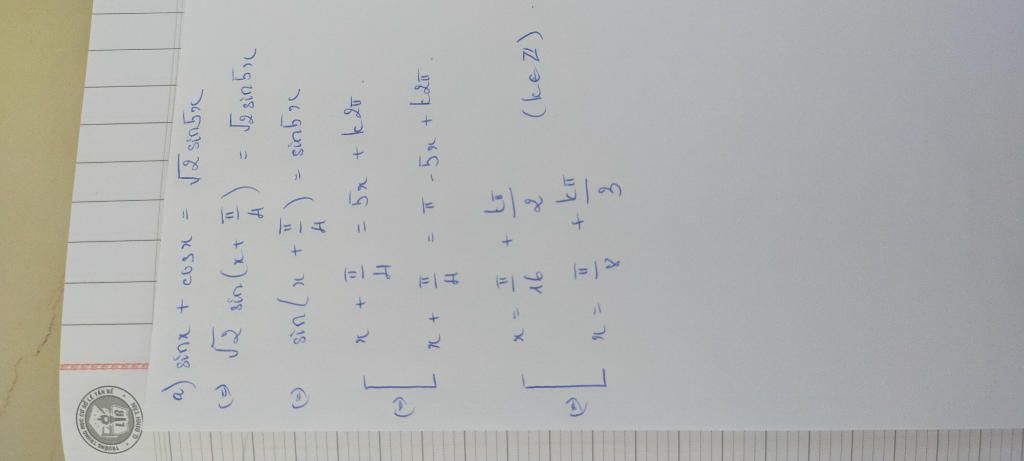 a) sinx + cosx = √2 sin5x
(=) √2 sin(x + π/4) = √2 sin5x
(=) sin(x + π/4) = sin5x
(=) [ x + π/4 = 5x + k2π.
x + π/4 = π - 5x + k2π.
(=) [ x = π/16 + kπ/2
x = π/8 + kπ/3 (k∈ℤ)